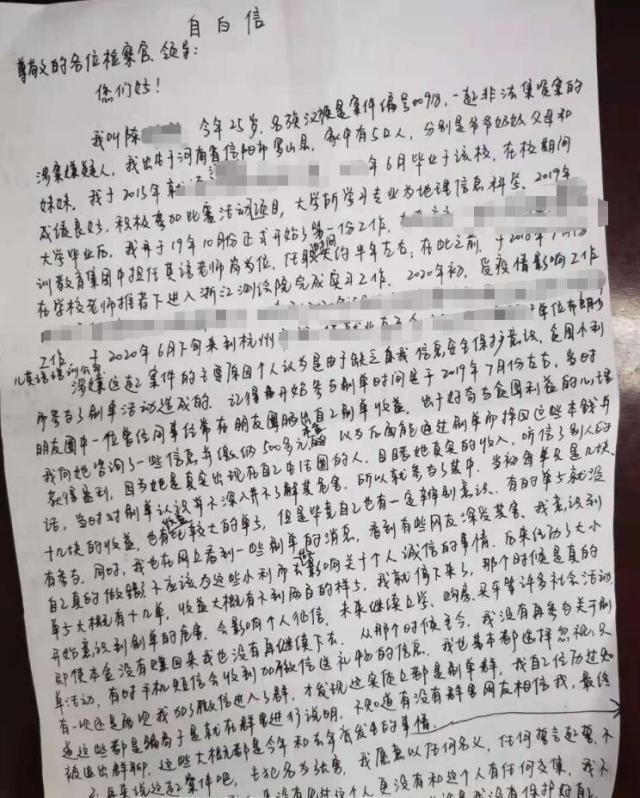 自白信
尊敬的各位检察官、领导:
您们好!
我叫陈 今年25岁,名族汉族是案件编号00918,一起非法集资案的
涉案嫌疑人,我出生于河南省信阳市罗山县,家中有5口人,分别是爷爷奶奶父母和
妹妹。我于2015年 年6月毕业于该校,在校期间
成绩良好,积极参加比赛活动项目,大学所学习专业为地理信息科学。2019年
大学毕业后,我并于19年10月份正式开始了第一份工作,
训教育集团中担任英语老师岗位,任职期间约半年左右;在此之前,于
在学校老师推荐下进入浙江测绘院完成实习工作。2020年初,受疫情影响工作
工作 于2020年6月下旬来到杭州
儿英语培训
涉嫌这起案件的主要原因个人认为是由于缺乏自我信息安全保护意识、贪图小利
而参与了刷单活动造成的。记得开始参与刷单时间是于2019年7月份左右,当时
朋友圈中一位曾任同事经常在朋友圈晒出自己刷单收益,出于好奇与贪图利益的心理
我向她咨询了一些信息并缴纳500多元 以为后面能通过刷单而挣回这些本钱与
获得盈利,因为她是真实出现在自己生活圈的人,且目睹她真实的收入,听信了别人的
话,当时对刷单认识并不深入并不了解其危害,所以就参与了其中。当初每单只是几块、
十几块的收益,也有比较大的单子,但是毕竟自己也有一定辨别意识,有的单子就没
有参与。同时,我也在网上看到一些刷单的消息,看到有些网友深受其害,我意识到
自己真的做错了不应该为这些小利而去影响关于个人诚信的事情。历来经历了大小
单子大概有十几单,收益大概有不到两百的样子,我就停下来了,那个时候是真的
开始意识到刷单的危害,会影响个人征信,未来继续上学、购房、买车等许多社会活动,
即使本金没有赚回来我也没有再继续下去。从那个时候至今,我没有再参与关于刷
单活动,有时手机短信会收到加微信送礼物的信息,我也基本都选择忽视,只
有一次还是两次我加了微信进入了群,才发现这实际上都是刷单群,我自己经历过知
道这些都是骗局于是就在群里进行说明,不知道有没有群里网友相信我,最终
被退出群聊,这些大概都是今年和去年前发生的事情。
再来说这起案件吧,主犯名为张 我愿意以任何名义,任何誓言起誓,不
这个人更没有和这个人有任何交集,我不